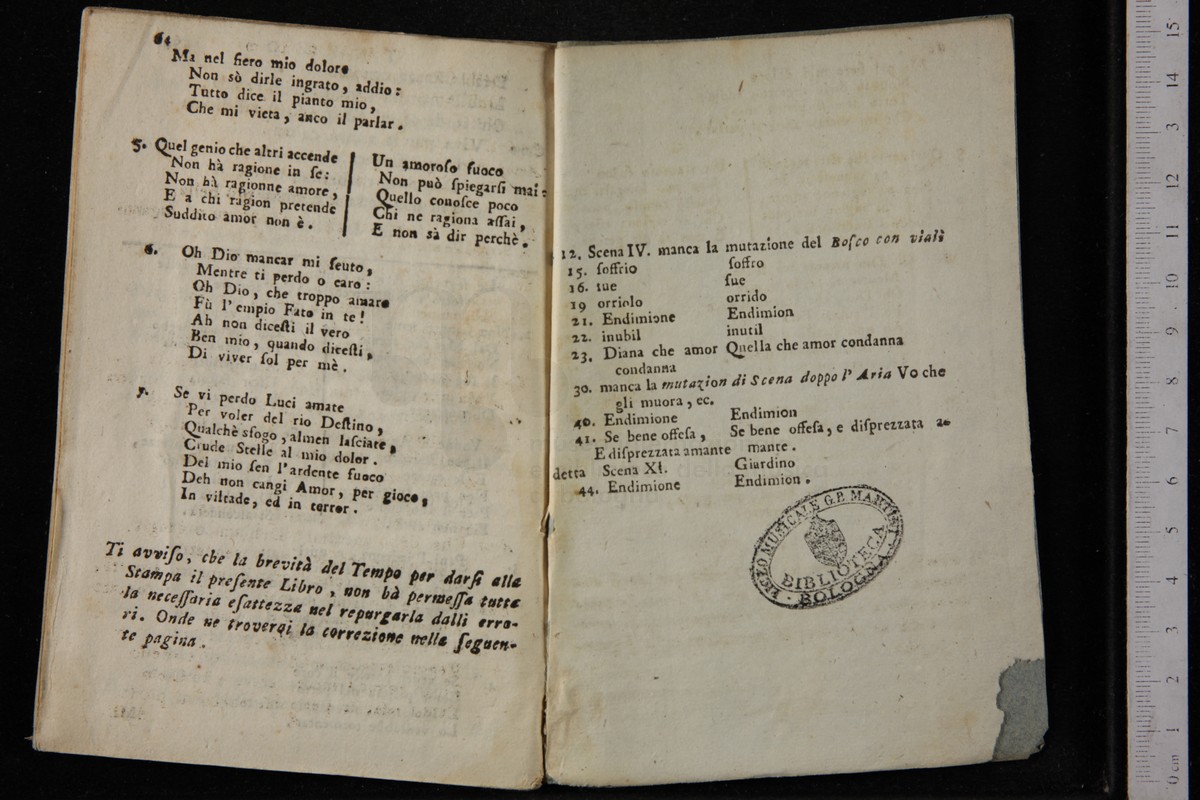 64
Ma nel fiero mio dolore
Non sò dirle ingrato, addio:
Tutto dice il pianto mio,
Che mi vieta, anco il parlar.
5. Quel genio che altri accende
Non hà ragione in ſe:
Non hà ragionne amore,
E a chi ragion pretende
Suddito amor non è.
Un amoroſo fuoco
Non può ſpiegarſi mai:
Quello conoſce poco
Chi ne ragiona aſſai,
E non sà dir perchè.
6. Oh Dio mancar mi ſento,
Mentre ti perdo o caro:
Oh Dio, che troppo amaro
Fù l'empio Fato in te!
Ah non diceſti il vero
Ben mio, quando diceſti,
Di viver ſol per mè.
7. Se vi perdo Luci amate
Per voler del rio Deſtino,
Qualchè sfogo, almen laſciate,
Crude Stelle al mio dolor.
Del mio ſen l'ardente fuoco
Deh non cangi Amor, per gioco,
In viltade, ed in terror.
Ti avviſo, che la brevità del Tempo per darſi alla
Stampa il preſente Libro, non hà permeſſa tutta
la neceſſaria eſattezza nel repurgarla dalli erro-
ri. Onde ne troverai la correzione nella ſeguen-
te pagina.
12. Scena IV. manca la mutazione del Boſco con viali
15. ſoffrio ſoffro
16. tue ſue
19 orriolo orrido
21. Endimione Endimion
22. inubil inutil
23. Diana che amor Quella che amor condanna
condanna
30. manca la mutazion di Scena doppo l'Aria Vo che
gli muora, ec.
40. Endimione Endimion
41. Se bene offeſa, Se bene offeſa, e diſprezzata a-
E diſprezzata amante mante.
detta Scena XI. Giardino
44. Endimione Endimion.
LICEO MUSICALE G.B. MARTINI
BIBLIOTECA
BOLOGNA